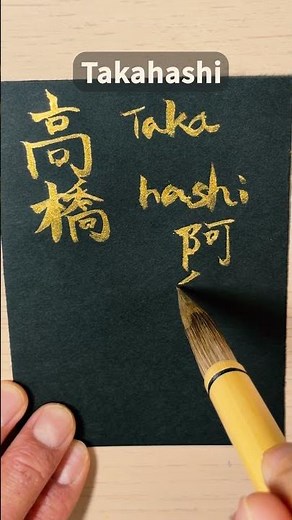 Takahashi
高橋
Taka
hashi
阿